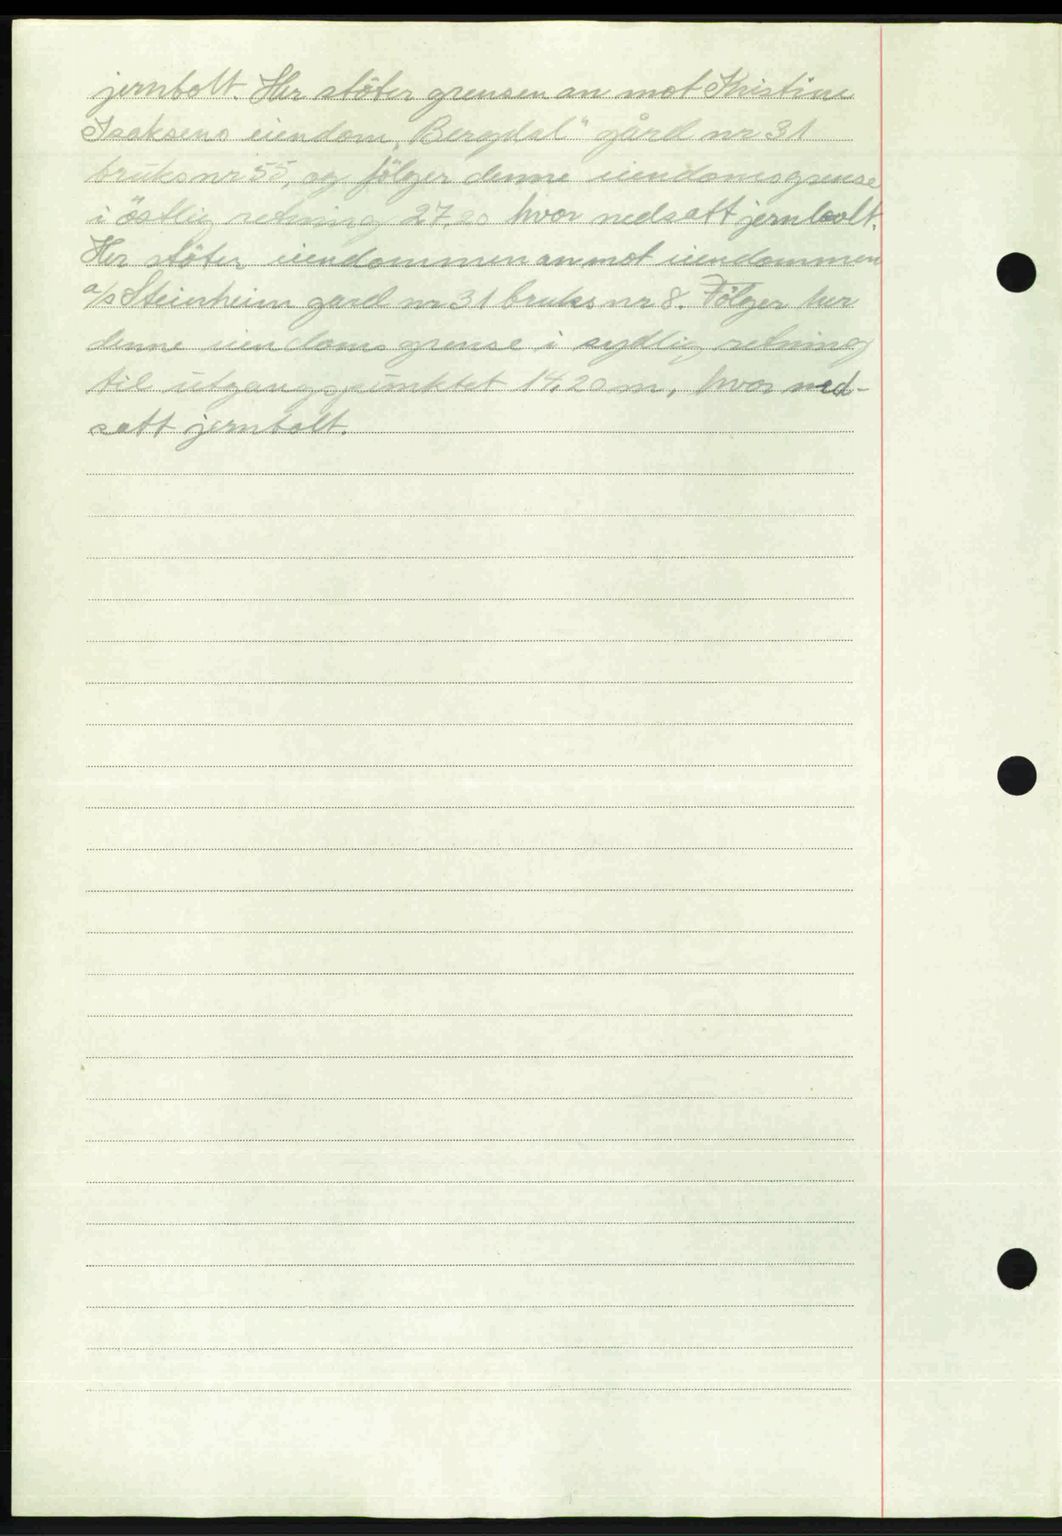 jernbolt. Her stöter grensen an mot Kristine
Isaksens eiendom „Bergdal“ gård nr 31
bruksnr 55, og fölger denne eiendomsgrense
i östlig retning 27,20 hvor nedsatt jernbolt.
Her stöter eiendommen an mot eiendommen
a/s Steinheim gard nr 31 bruks nr 8. Fölger her
denne eiendoms grense i sydlig retning
til utgangspunktet 14,20 m, hvor ned-
satt jernbolt.